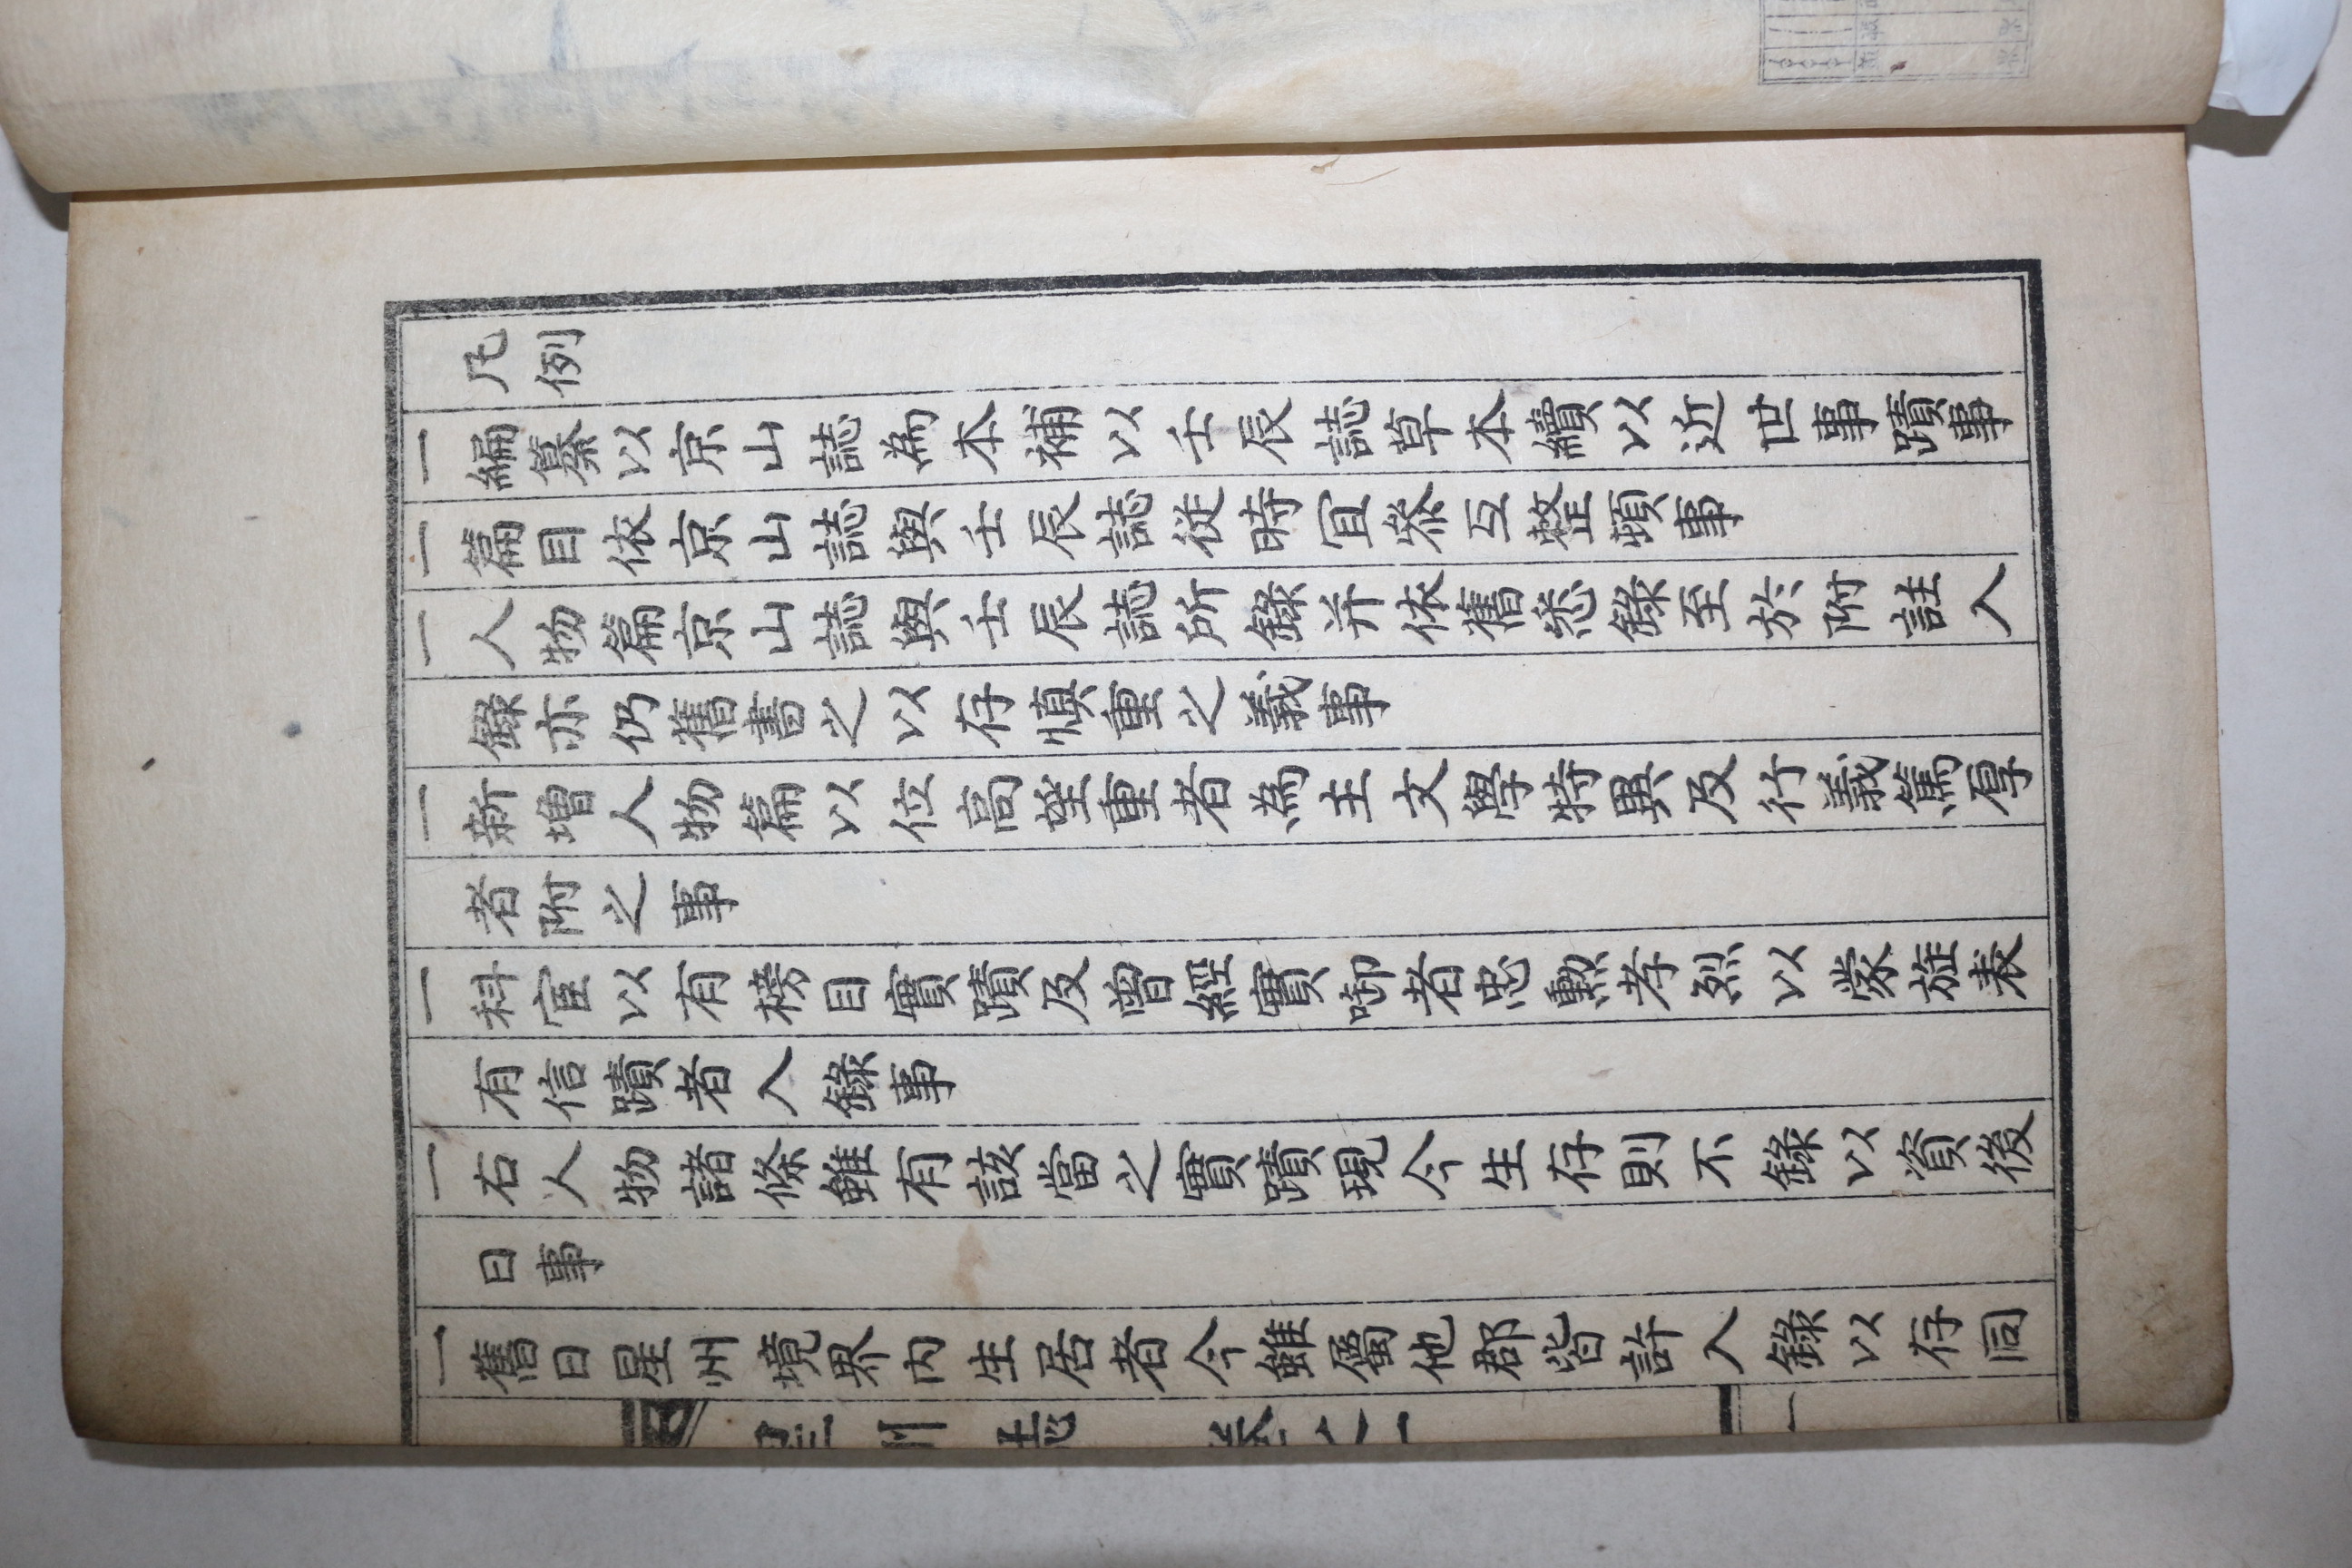 凡例
一編纂以京山誌為本補以壬辰誌草本續以近世事蹟事
一篇目依京山誌與壬辰誌從時宜叅互整頓事
一人物篇京山誌與壬辰誌所錄并依舊悉錄至於附註入
錄亦仍舊書之以存愼重之義事
一新增人物篇以位高望重者為主文學特異及行義篤厚
者附之事
一科宦以有榜目實蹟及曾經實啣者忠勲孝烈以蒙旌表
有信蹟者入錄事
一右人物諸條雖有該當之實蹟現今生存則不錄以資後
日事
一舊日星州境界內生居者今雖屬他郡皆許入錄以存同
星州誌 卷之一 一